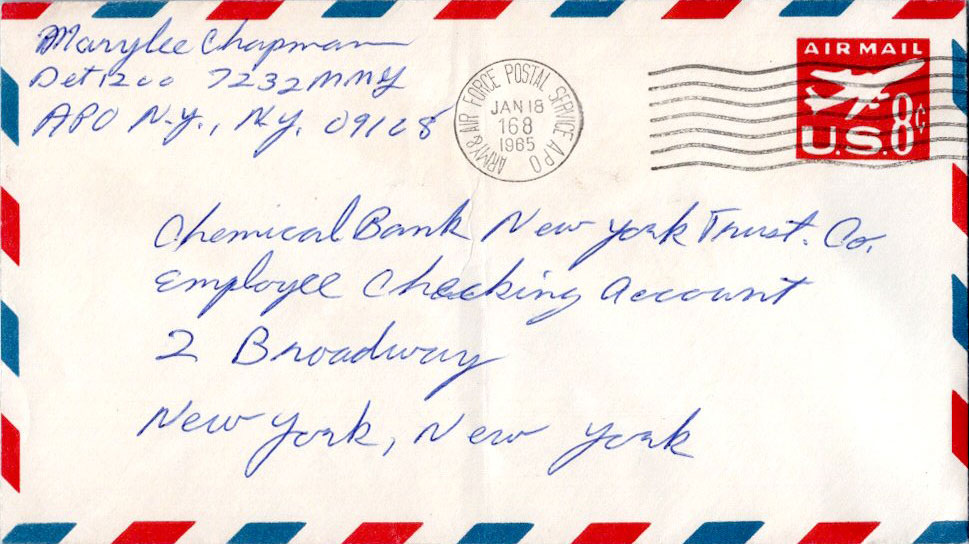 Marylee Chapman
Det 200 7232 MMG
APO N.Y., N.Y. 09108
ARMY & AIR FORCE POSTAL SERVICE APO
JAN 18
168
1965
AIR MAIL
8¢
U.S.
Chemical Bank New York Trust. Co.
Employee Checking Account
2 Broadway
New York, New York